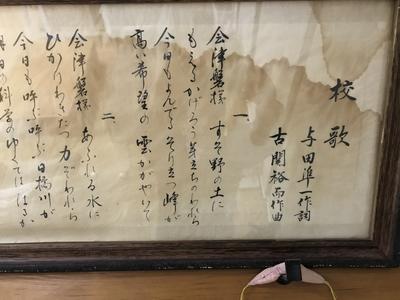 校歌
与田準一作詞
古関裕而作曲
一、
会津磐梯 すそ野の土に
もえるかげろう 芽立ちのわれら
今日もよんでる そり立つ峰が
高い希望の 雲がかがやいて
二、
会津磐梯 あふれる水に
ひかりわきたつ 力ぞわれら
今日も呼ぶ呼ぶ 日橋川が